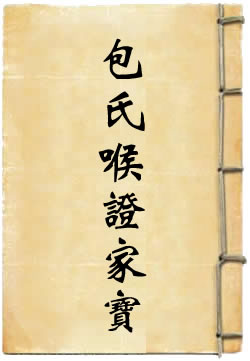 包氏喉證家寶